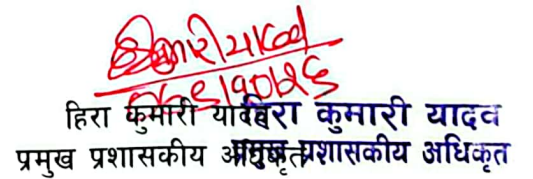 हिरा कुमारी यादव हिरा कुमारी यादव
प्रमुख प्रशासकीय अधिकृत प्रमुख प्रशासकीय अधिकृत